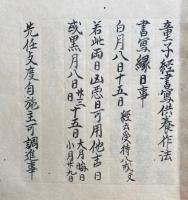 童子経書写供養作法
書写縁日事
白月八日十五日 経云受持八戒文
若此両日凶悪日可用他吉日
或黒月八日廿三十五日 大月晦日 小月廿九日
先任支度自施主可調進事